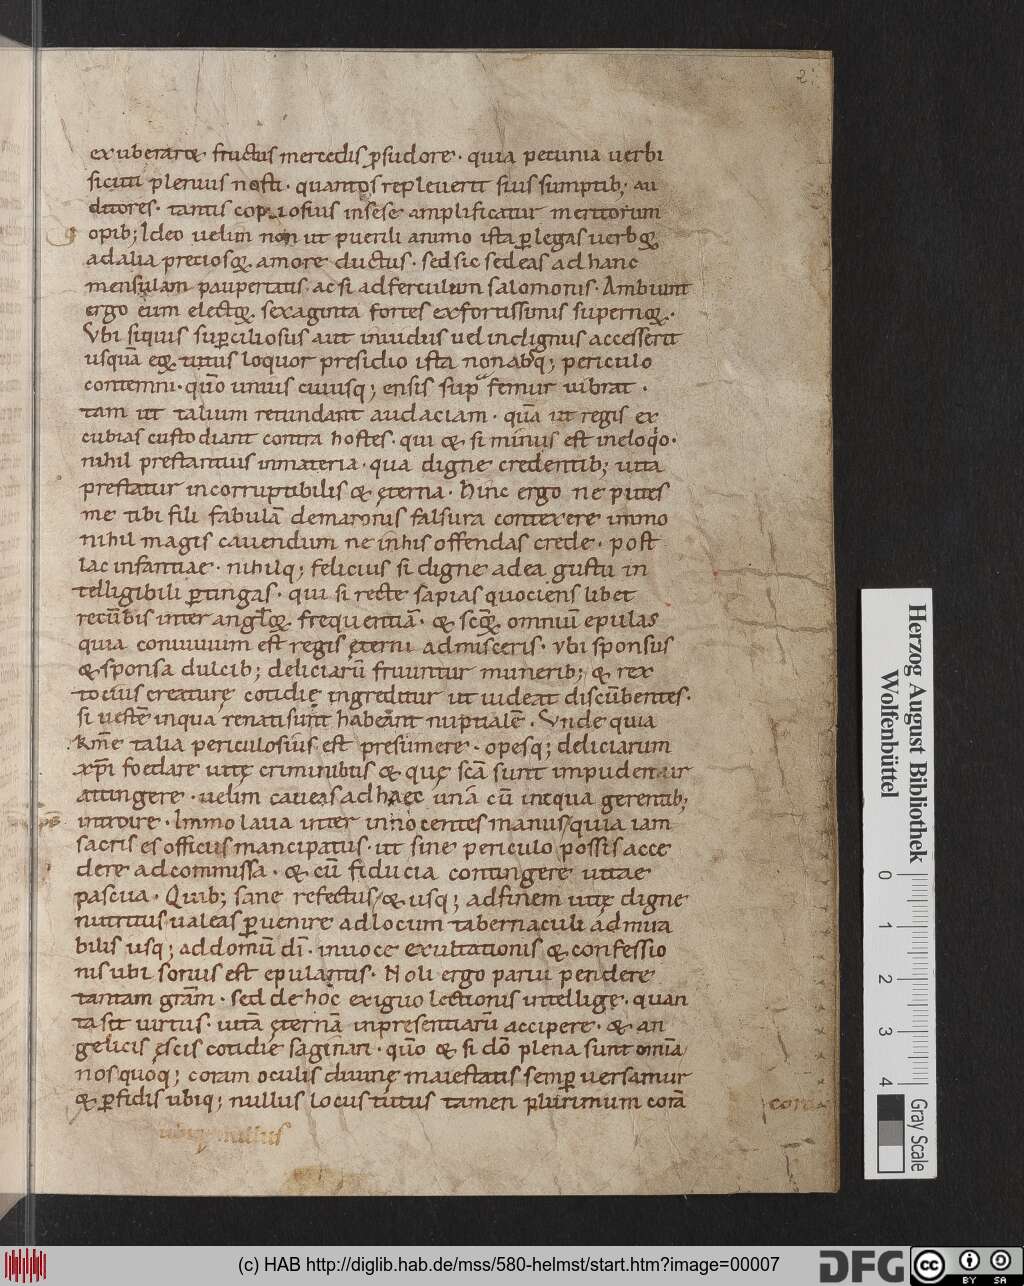 2
exuberaræ fructus mercedis ꝓsudore · quia pecunia uerbi
sicuti plerunis nosti · quantos repleuerit suis sumptib; au
ditores · tantis copiosius insese amplificatur meritorum
opib; Ideo uelim non ut puerili animo ista plegas uerbq
ad alia preciosq · amore ductus · sed sic sedeas ad hanc
mensulam paupertatis ac si ad ferculum salomonis · Ambiunt
ergo eum electq · sexaginta fortes ex fortissimis supernq ·
Vbi siquis supciliosus aut inuidus uel indignus accesserit
usquā tutus loquor presidio ista non absq; periculo
contemni · quō unius cuiusq; ensis sup femur uibrat ·
tam ut talium retundant audaciam · quā ut regis ex
cubias custodiant contra hostes · qui & si minus est ineloqio ·
nihil prestantius inmateria · qua digne credentib; uita
prestatur incorruptibilis & ęterna · Hinc ergo ne putes
me tibi fili fabulā demaronis falsura contexere immo
nihil magis cauendum ne inhis offendas crede · post
lac infantiae · nihilq; felicius si digne ad ea gustu in
telligibili ptingas · qui si recte sapias quociens libet
recūbis inter anglq · frequentiā · & scq · omniū epulas
quia conuiuium est regis ęterni admisceris · Vbi sponsus
& sponsa dulcib; deliciarū fruuntur munerib; & rex
tocius creaturę cotidię ingreditur ut uideat discūbentes ·
si uestē inqua renati sunt habeant nuptialē · Vnde quia
kme talia periculosius est presumere · opesq; deliciarum
xp̄i foedare uitę criminibus & quę scā sunt impudenter
attingere · uelim caueas ad haec unā cū inequa gerentib;
introire · Immo laua inter innocentes manus quia iam
sacris es officiis mancipatus · ut sine periculo possis acce
dere ad commissa · & cū fiducia contingere uitae
pascua · Quib; sane refectus & usq; adfinem uitę digne
nutritus ualeas puenire ad locum tabernaculi admira
bilis usq; ad domū dī · in uoce exultationis & confessio
nis ubi sonus est epulantis · Noli ergo parui pendere
tantam grām · sed de hoc exiguo lectionis intellige · quan
ta sit uirtus · uitā ęternā inpresentiarū accipere · & an
gelicis ęscis cotidię saginari · quō & si dō plena sunt omīa
nosquoq; coram oculis diuinę maiestatis semp uersamur
& pfidis ubiq; nullus locus tutus tamen plurimum corā
ubiq; nullus
Herzog August Bibliothek
Wolfenbüttel
0 1 2 3 4
Gray Scale
(c) HAB http://diglib.hab.de/mss/580-helmst/start.htm?image=00007
DFG
cc BY SA